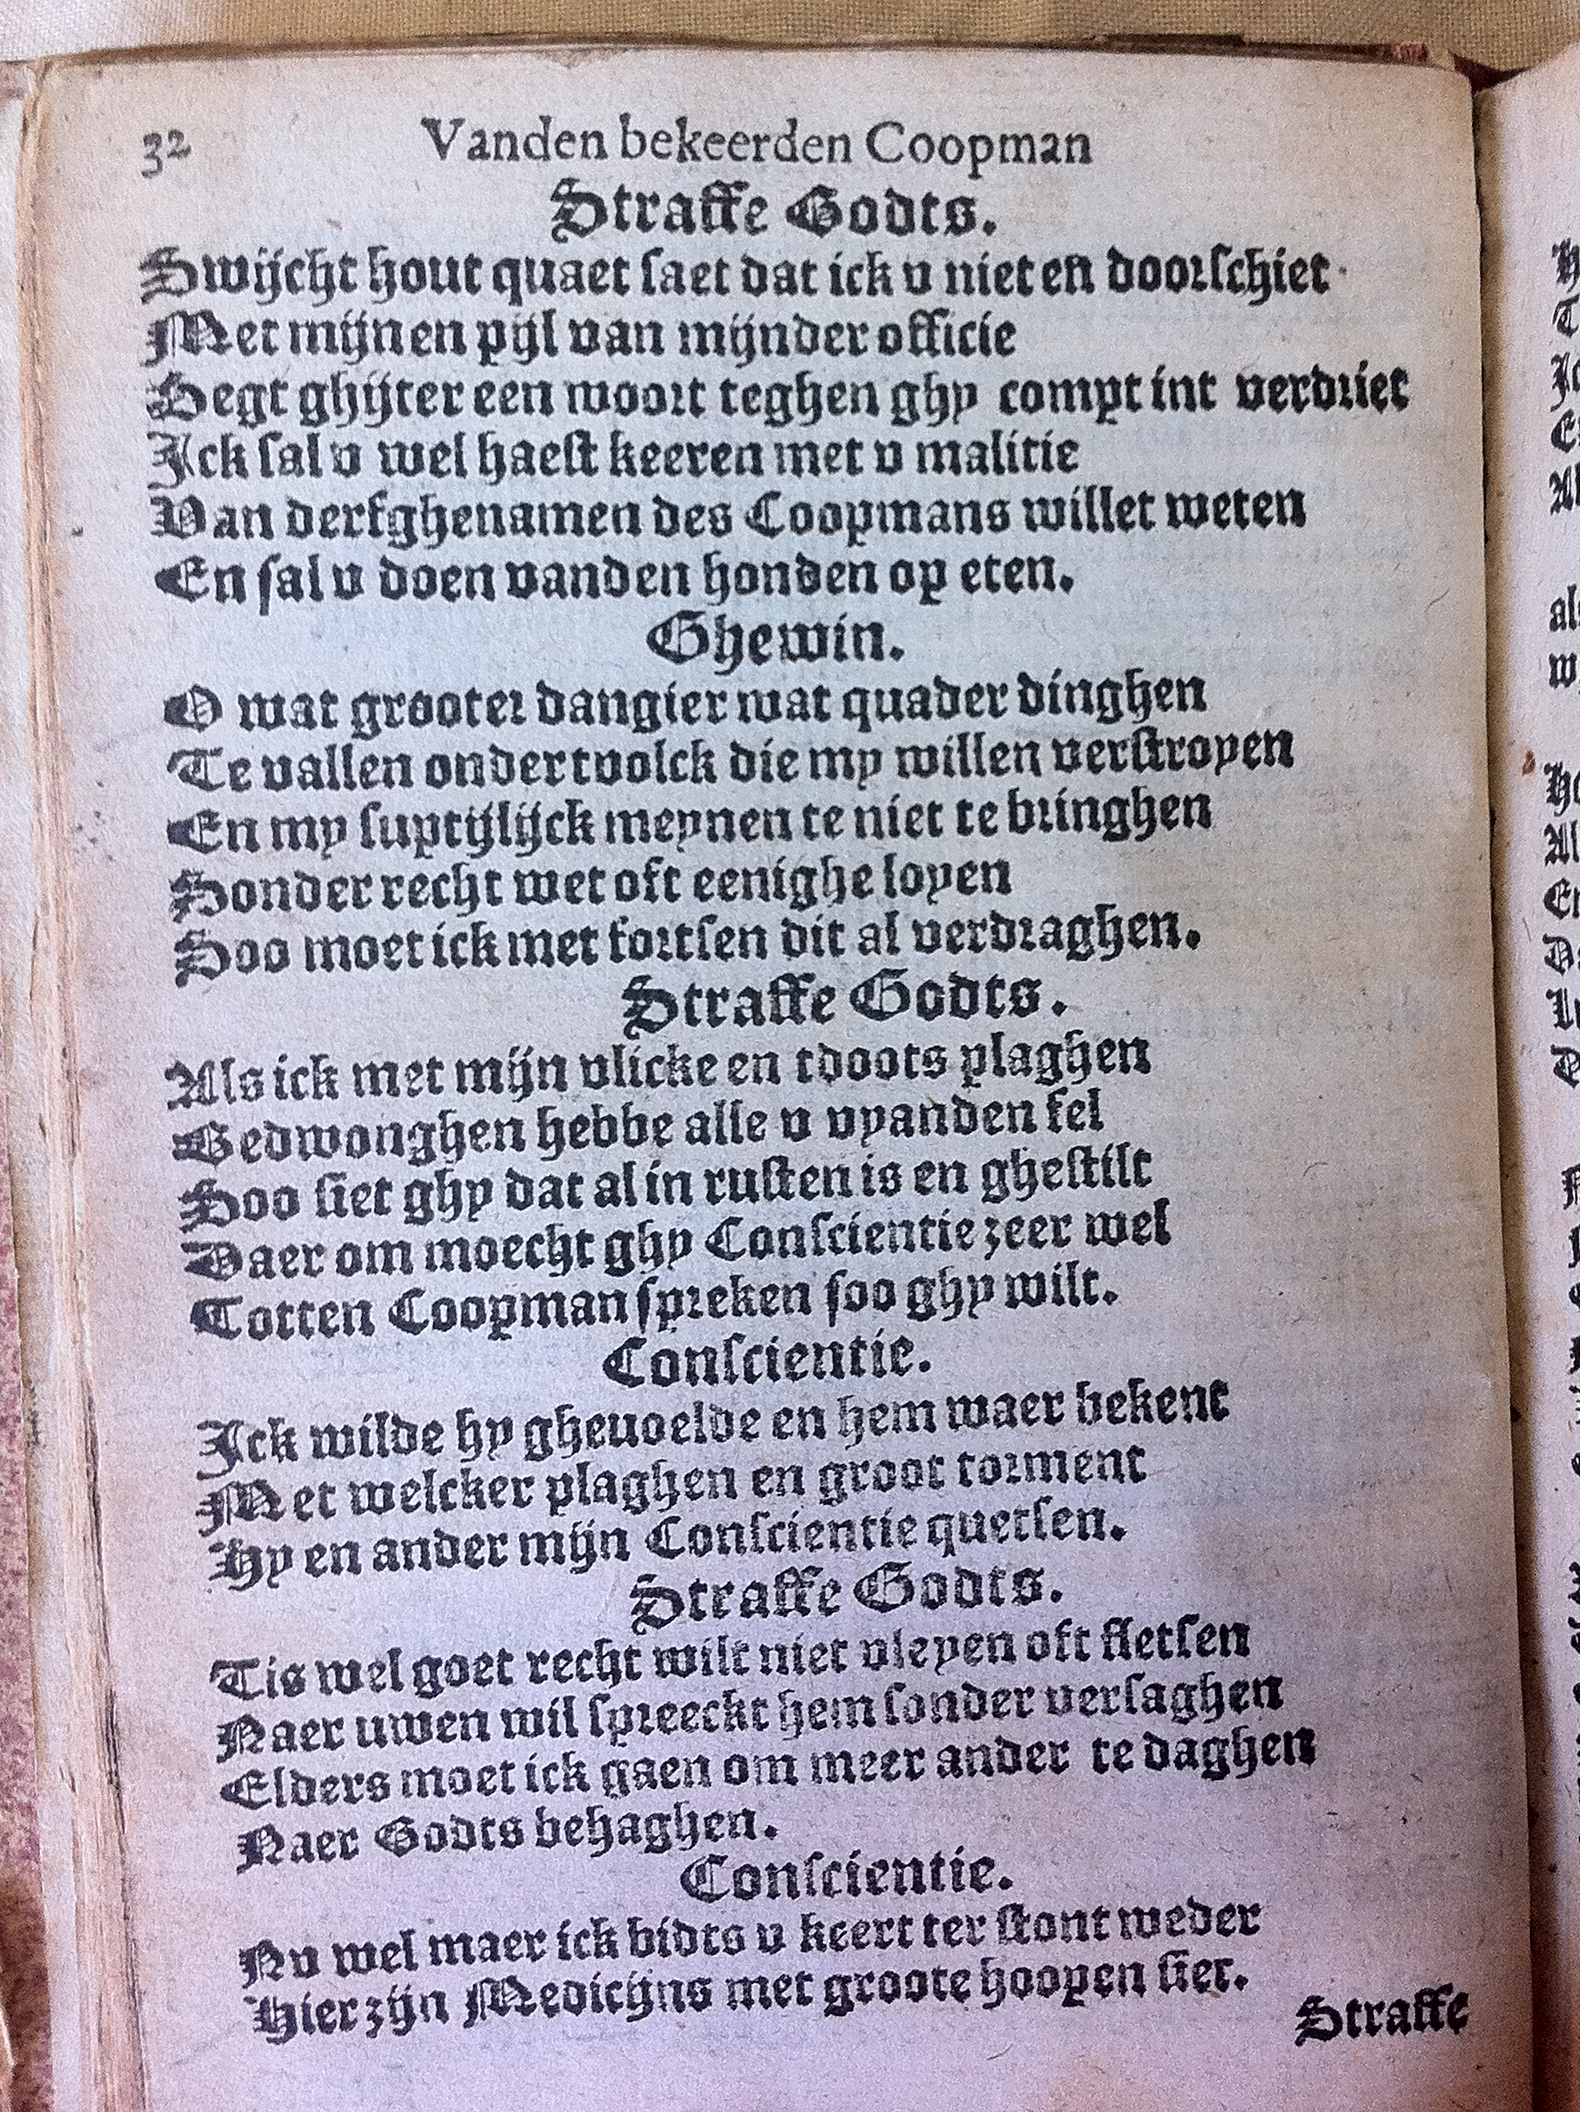 32 Vanden bekeerden Coopman
Straffe Godts.
Swijcht hout quaet saet dat ick v niet en doorschiet
Met mijnen pijl van mijnder officie
Segt ghijter een woort teghen ghy compt int verdriet
Ick sal v wel haest keeren met v malitie
Van derfghenamen des Coopmans willet weten
En sal v doen vanden honden op eten.
Ghewin.
O wat grooter dangier wat quader dinghen
Te vallen onder tvolck die my willen verstroyen
En my suptijlijck meynen te niet te bringhen
Sonder recht wet oft eenighe loyen
Soo moet ick met fortsen dit al verdraghen.
Straffe Godts.
Als ick met mijn vlicke en tdoots plaghen
Gedwonghen hebbe alle v vyanden fel
Soo siet ghy dat al in rusten is en ghestilt
Daer om moecht ghy Conscientie zeer wel
Totten Coopman spreken soo ghy wilt.
Conscientie.
Ick wilde hy gheuoelde en hem waer bekent
Met welcker plaghen en groot torment
Hy en ander mijn Conscientie quetsen.
Straffe Godts.
Tis wel goet recht wilt niet vleyen oft fletsen
Naer uwen wil spreeckt hem sonder versaghen
Elders moet ick gaen om meer ander te daghen
Naer Godts behaghen.
Conscientie.
Nv wel maer ick bidts v keert ter stont weder
Hier zijn Medicijns met groote hoopen siet.
Straffe